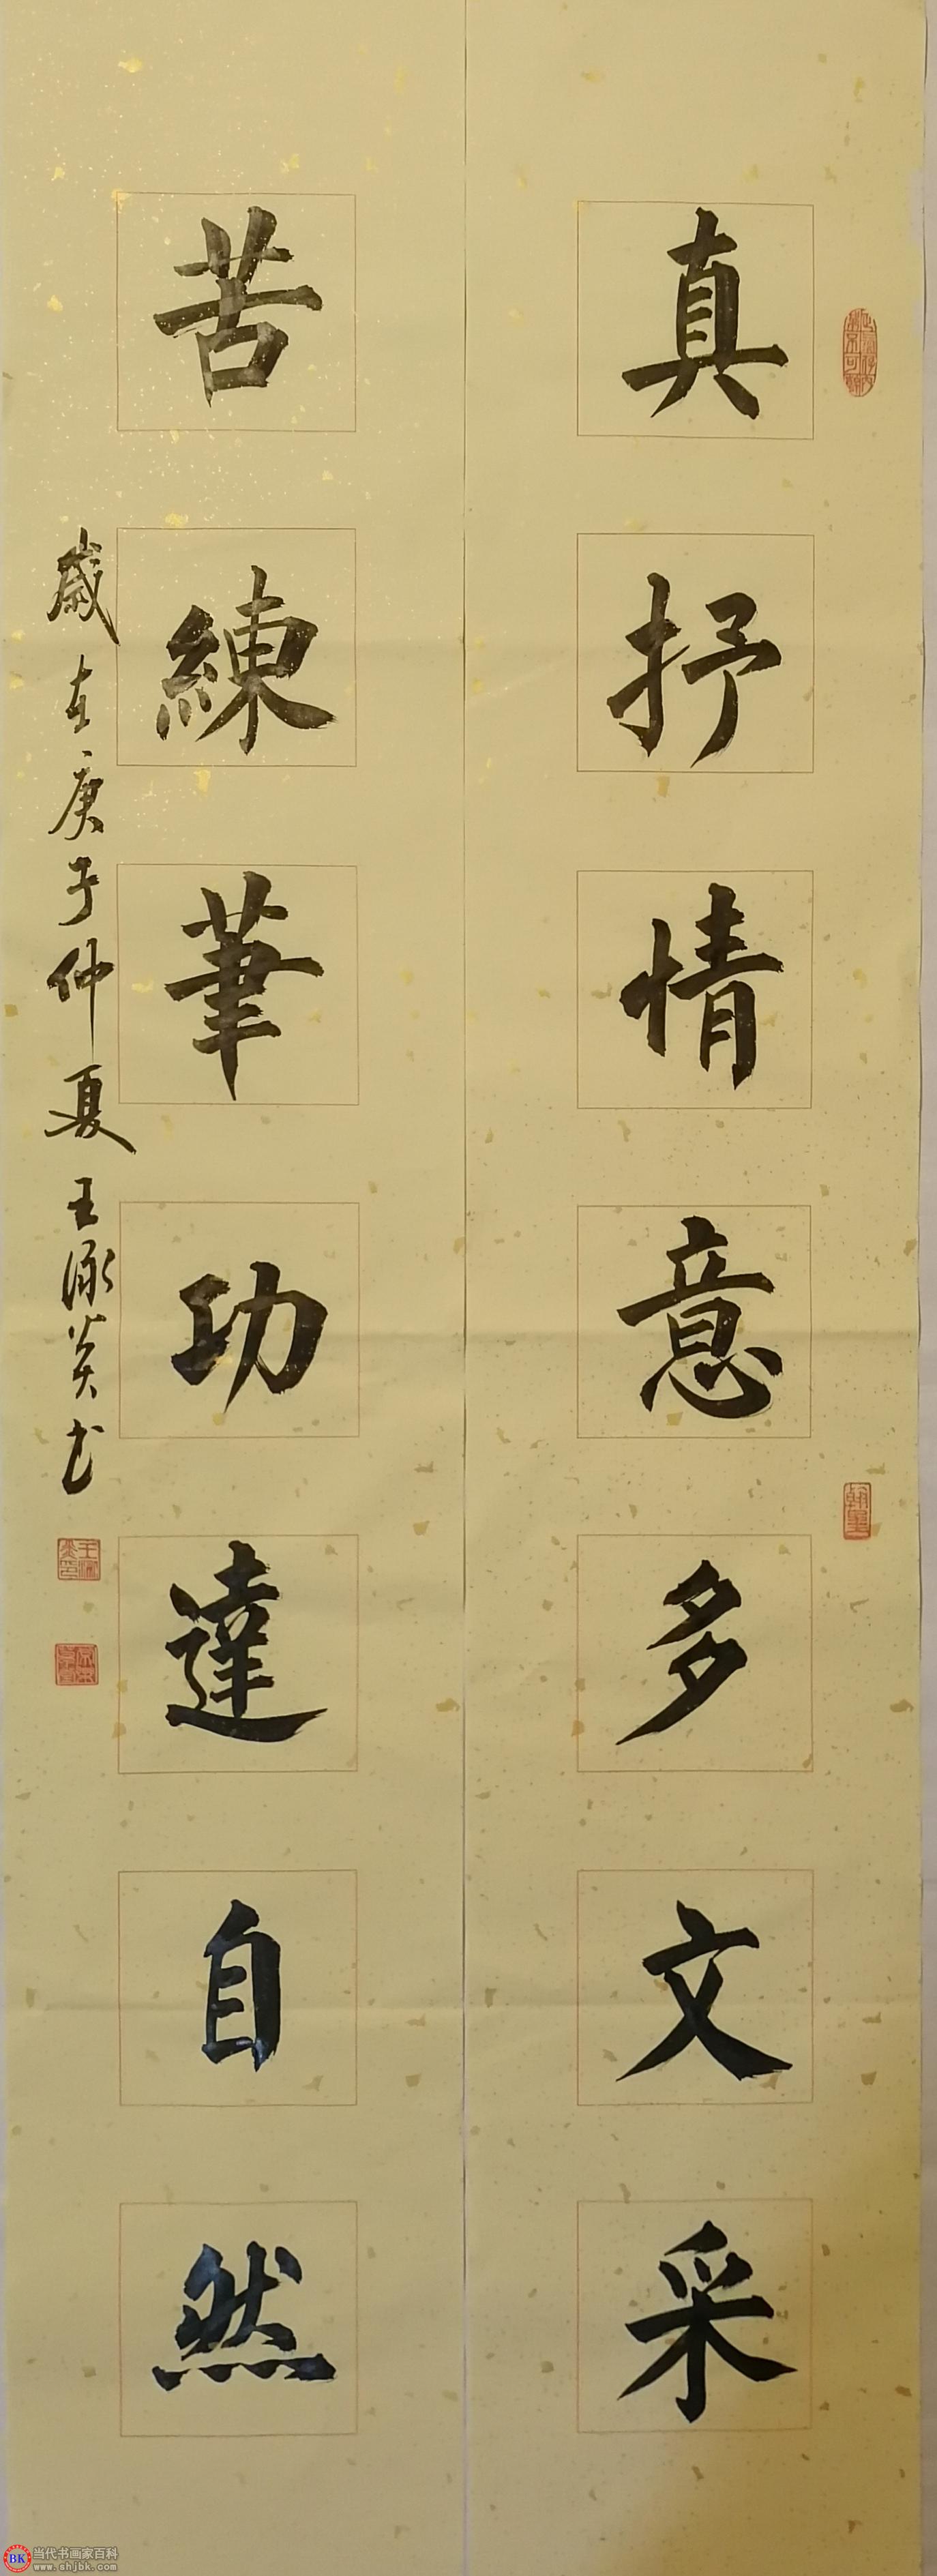 真抒情意多文采
苦練筆功達自然
歲在庚子仲夏王泳炎书
翰墨
BK 当代书画家百科
www.shjbk.com